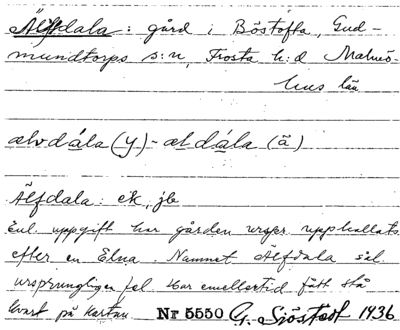 Älfdala: gård i Böstofta, Gud-
mundtorps s:n, Frosta h:d Malmö-
hus län
ælvdála (y) - ældála (ä)
Älfdala: ek, jb
Enl. uppgift har gården urspr. uppkallats
efter en Elna. Namnet Älfdala sål.
ursprungligen fel. Har emellertid fått stå
kvar på kartan. Nr 5550 G. Sjöstedt 1936